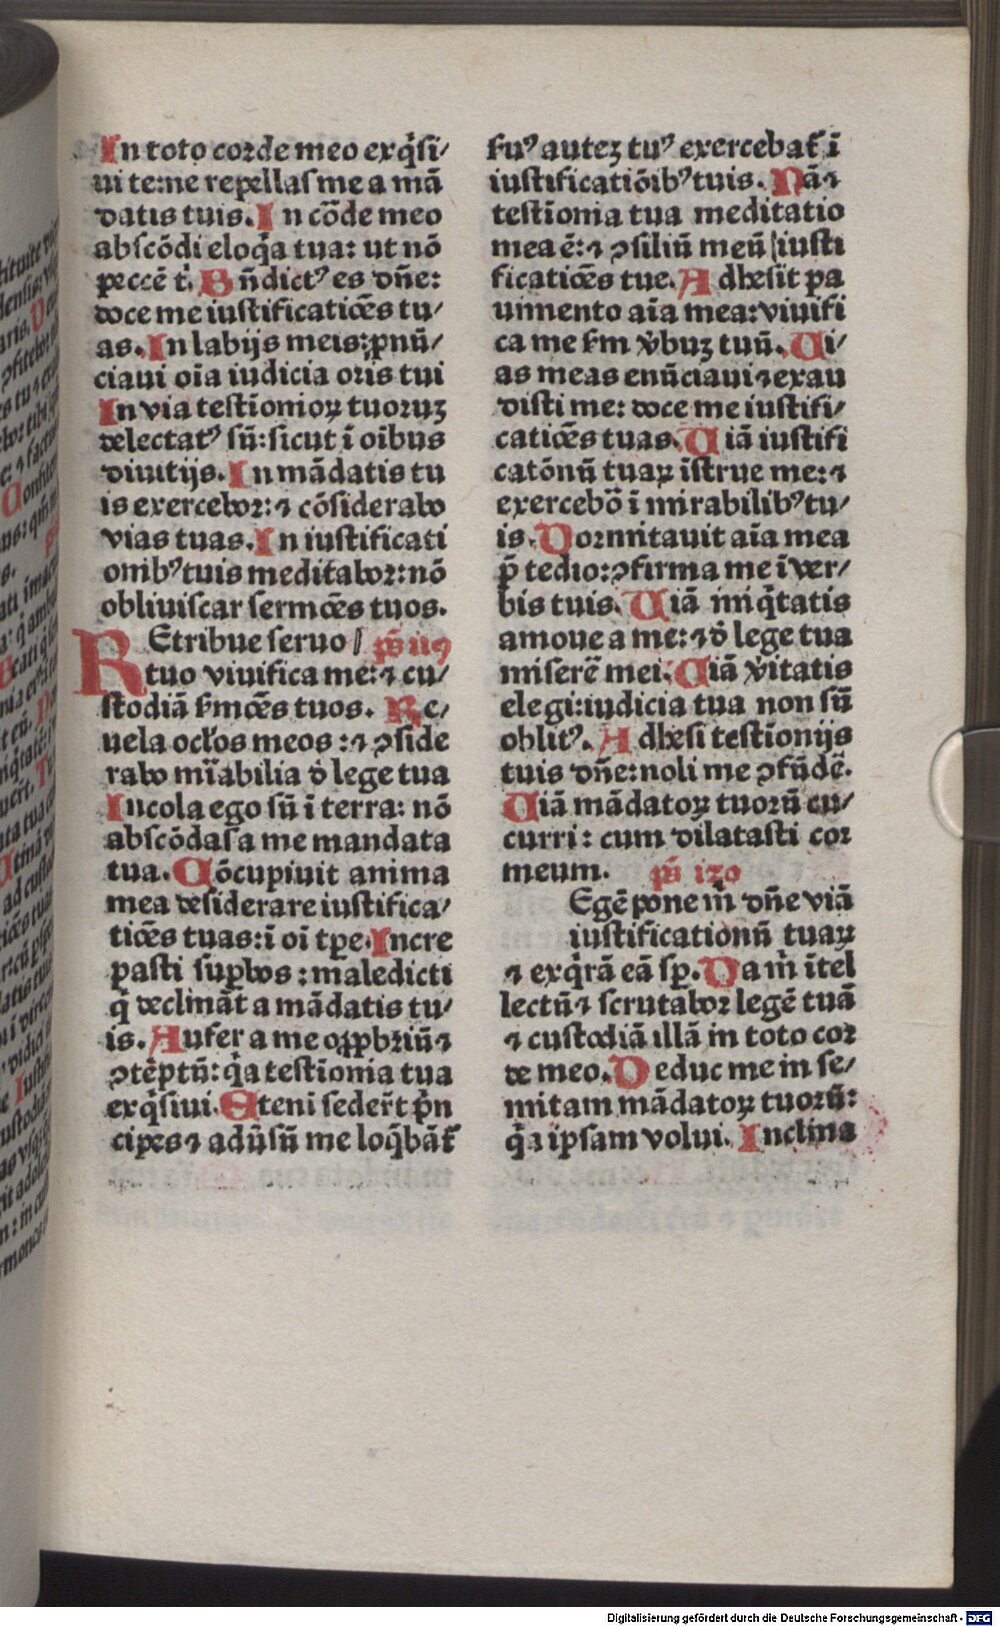 In toto corde meo exq̇si/
ui te:ne repellas me a mā
datis tuis. In cōde meo
abscōdi eloq̇a tua: ut nō
peccē t̓. Bn̄dictꝰ es dn̄e:
doce me iustificatiōes tu/
as. In labijs meis:ꝓnū/
ciaui oīa iudicia oris tui
In via testimonioꝝ tuoruꝫ
delectatꝰ sū:sicut ī oībus
diuitijs. In mādatis tu
is exercebor:⁊ cōsiderabo
vias tuas. In iustificati
onibꝰ tuis meditabor:nō
obliuiscar sermōes tuos.
REtribue seruo / ps̄ ii9
tuo viuifica me:⁊ cu/
stodiā s̓mōes tuos. Re/
uela ocl̓os meos :⁊ ꝯside
rabo mīabilia d̓ lege tua
Incola ego sū ī terra: nō
abscōdas a me mandata
tua. Cōcupiuit anima
mea desiderare iustifica/
tiōes tuas:ī oī tꝑe. Incre
pasti suꝑbos : maledicti
q̇ declināt a mādatis tu/
is. Aufer a me oꝓpbriū ⁊
ꝯtēptū: q̇a testīonia tua
exq̇siui. Eteni seder̄t p̓n
cipes ⁊ adūsū me loq̄bāt̓
s̓uꝰ auteꝫ tuꝰ exercebat̓ ī
iustificatiōībꝰ tuis. Nā ⁊
testīonia tua meditatio
mea ē: ⁊ ꝯsiliū meū /iusti
ficatiōes tue. Adhesit pa
uimento aīa mea:viuifi
ca me s̓m v̓buꝫ tuū. Ui/
as meas enūciaui ⁊ exau
disti me: doce me iustifi/
catiōes tuas. Uiā iustifi
catōnū tuaꝝ īstrue me: ⁊
exercebō ī mirabilibꝰ tu/
is. Dormitauit aīa mea
p̄ tedio:ꝯfirma me ī ver/
bis tuis. Uiā iniq̇tatis
amoue a me: ⁊ d̓ lege tua
miserē mei. Uiā v̓itatis
elegi:iudicia tua non sū
oblitꝰ. Adhesi testīonijs
tuis dn̄e:noli me ꝯfūdē.
Uiā mādatoꝝ tuorū cu/
curri: cum dilatasti cor
meum. ps̄ izo
Egē pone m̓ dn̄e viā
iustificationū tuaꝝ
⁊ exq̇rā eā sp̄. Da m̓ ītel
lectū ⁊ scrutabor legē tuā
⁊ custodiā illā in toto cor
de meo. Deduc me in se/
mitam mādatoꝝ tuorū:
q̇a ipsam volui. Inclina
Digitalisierung gefördert durch die Deutsche Forschungsgemeinschaft - DFG